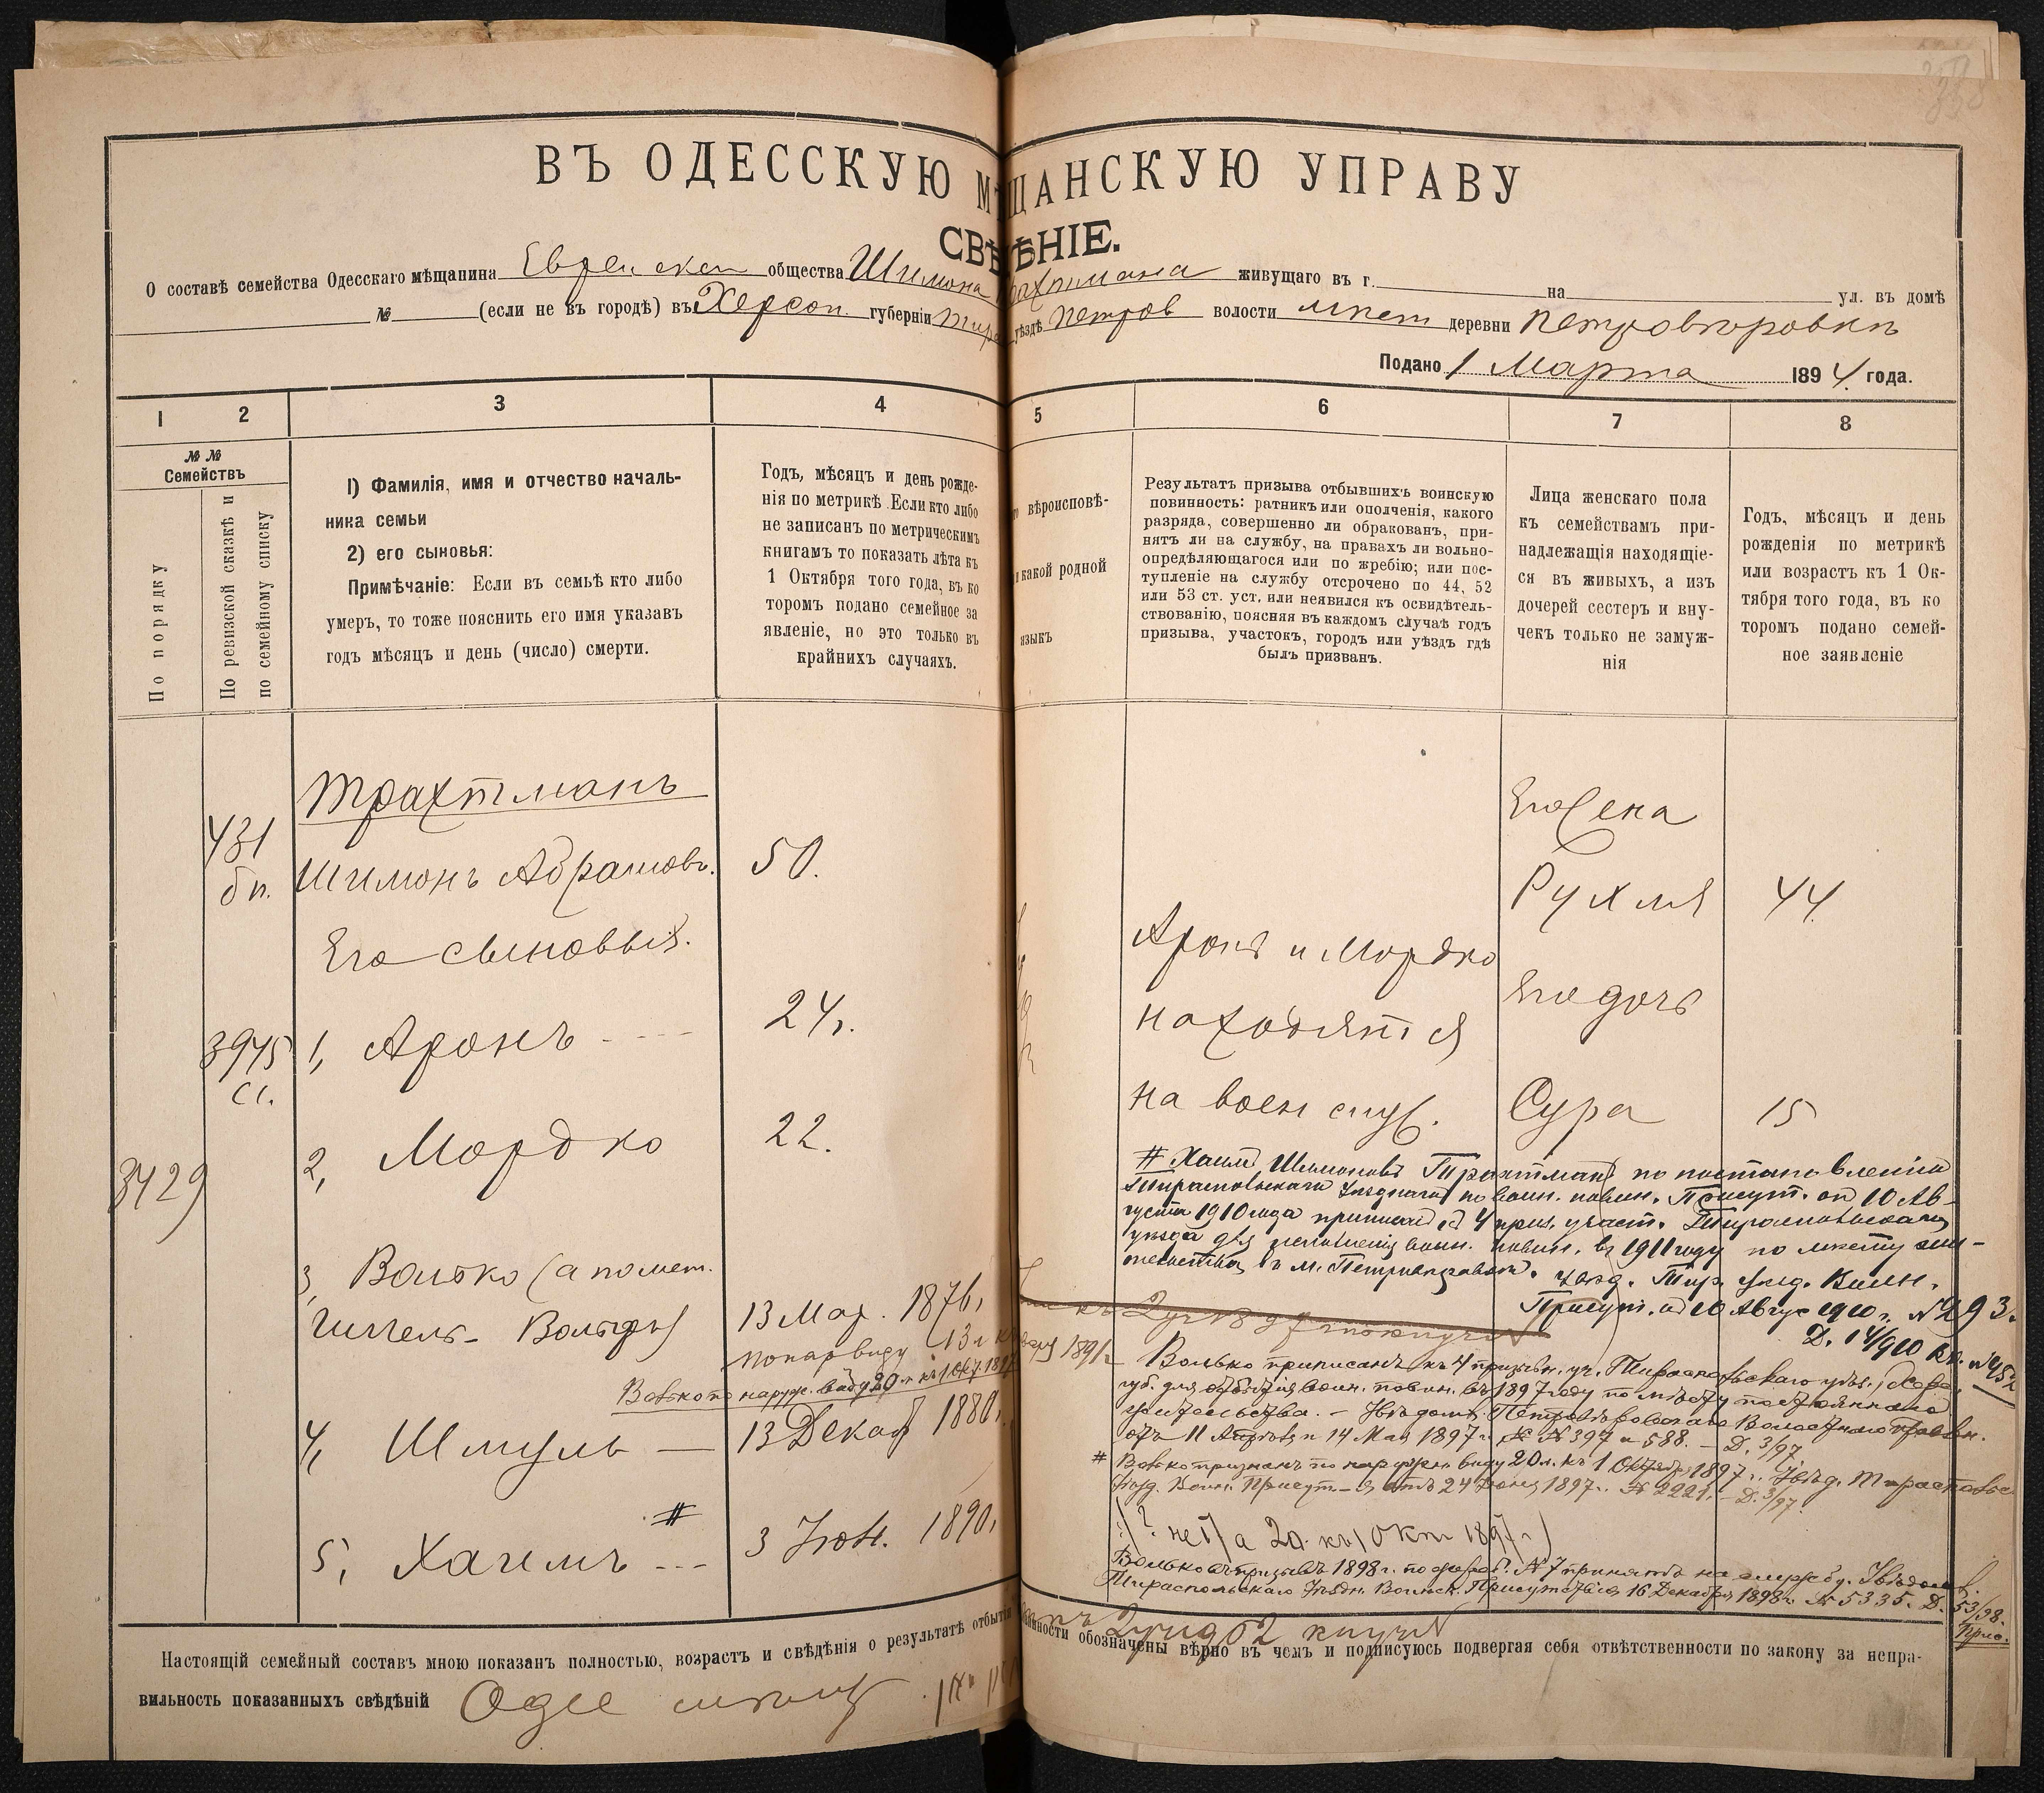 ВЪ ОДЕССКУЮ МѢЩАНСКУЮ УПРАВУ
СВѢДѢНІЕ.
О составѣ семейства Одесскаго мѣщанина Еврейскаг общества Шимона Трахтмана живущаго въ г. на ул. въ домѣ
№ (если не въ городѣ) въ Херсон. губерніи Тирас уѣздѣ Петров волости мѣст деревни Петровѣровкѣ
Подано 1 Марта 1894 года.
1 2 3 4 5 6 7 8
№№
Семействъ
По порядку
По ревизской сказкѣ и
по семейному списку
1) Фамилія, имя и отчество началь-
ника семьи
2) его сыновья:
Примѣчаніе: Если въ семьѣ кто либо
умеръ, то тоже пояснить его имя указавъ
годъ мѣсяцъ и день (число) смерти.
Годъ, мѣсяцъ и день рожде-
нія по метрикѣ Если кто либо
не записанъ по метрическимъ
книгамъ то показать лѣта къ
1 Октября того года, въ ко
торомъ подано семейное за
явленіе, но это только въ
крайнихъ случаяхъ.
вѣроисповѣ-
и какой родной
языкъ
Результатъ призыва отбывшихъ воинскую
повинность: ратникъ или ополченія, какого
разряда, совершенно ли обракованъ, при-
нятъ ли на службу, на правахъ ли вольно-
опредѣляющагося или по жребію; или пос-
тупленіе на службу отсрочено по 44, 52
или 53 ст. уст. или неявился къ освидѣтель-
ствованію, поясняя въ каждомъ случаѣ годъ
призыва, участокъ, городъ или уѣздъ гдѣ
былъ призванъ.
Лица женскаго пола
къ семействамъ при-
надлежащія находящіе-
ся въ живыхъ, а изъ
дочерей сестеръ и вну-
чекъ только не замуж-
нія
Годъ, мѣсяцъ и день
рожденія по метрикѣ
или возрастъ къ 1 Ок-
тября того года, въ ко
торомъ подано семей-
ное заявленіе
Трахтманъ
431
бп.
Шимонъ Абрамовъ. 50.
Его сыновья.
3975
сс.
1, Аронъ 24.
2, Мордко 22.
3429
3, Волько (а по мет.
Гиллель-Вольфъ) 13 Мар. 1876,
по нар виду 13 л къ янв 1891 г
Волько по наруж. виду 20 л къ 1 Окт 1897
4, Шмуль — 13 Декаб 1880.
#
5, Хаимъ 3 Іюн. 1890,
Его жена
Рухля 44
Его дочь
Сура 15
Аронъ и Мордко
находятся
на воен служ.
# Хаимъ Шимоновъ Трахтманъ по постановленію
Тираспольскаго Уѣзднаго по воин. повин. Присут. от 10 Ав-
густа 1910 года приписан къ 4 приз. участ. Тираспольскаго
уѣзда для исполненія воин. повин. въ 1911 году по мѣсту жи-
тельства въ м. Петровѣровкѣ. Увѣд. Тир. Уѣзд. Воин.
Присут. от 10 Август 1910 г. №293.
Д. 14/910
Волько приписанъ къ 4 призывн. уч. Тираспольскаго уѣз., Херс.
губ. для отбытія воин. повин. въ 1897 году по мѣсту постояннаго
жительства. — Увѣдомл. Петровѣровскаго Волостного Правлен.
отъ 11 Апрѣля и 14 Мая 1897 г. за № 397 и 588. — Д. 3/97
# Волько признанъ по наружн. виду 20 л. къ 1 Октября 1897 г. Увѣд. Тираспольс
Уѣзд. Воин. Присут—я отъ 24 Іюня 1897 г. № 2221. — Д. 3/97.
20 къ 1 Окт 1897 г)
Волько въ призывъ 1898 г. по жереб. № 7 принятъ на службу. Увѣдомл.
Тираспольскаго Уѣздн. Воинск. Присутствія 16 Декабря 1898 г. № 5335. Д. 53/98.
Настоящій семейный составъ мною показанъ полностью, возрастъ и свѣдѣнія о результатѣ отбытія повинности обозначены вѣрно въ чемъ и подписуюсь подвергая себя отвѣтственности по закону за непра-
вильность показанныхъ свѣдѣній Одес